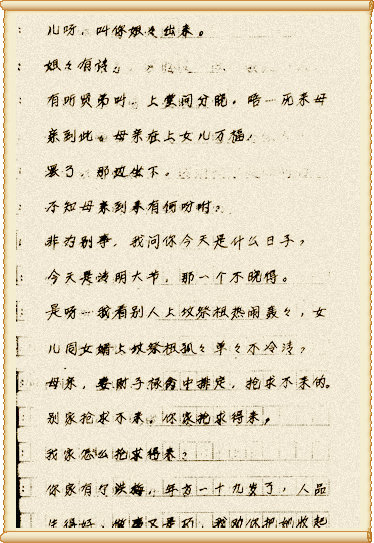 : 儿呀，叫你姐々出来。
: 姐々有请。
: 有听贤弟叫，上堂问分晓。唔一死来母
亲到此，母亲在上女儿万福。
: 罢了，那边坐下。
: 不知母亲到来有何吩咐？
: 非为别事，我问你今天是什么日子？
: 今天是清明大节，那一个不晓得。
: 是呀一我看别人上坟祭祖热闹轰々，女
儿同女婿上坟祭祖孤々单々不冷清？
: 母亲，妻财子禄命中排定，抢求不来的。
别家抢求不来，你家抢求得来。
我家怎么抢求得来？
: 你家有个洪梅，年方一十九岁了，人品
生得好，我劝你把她收起